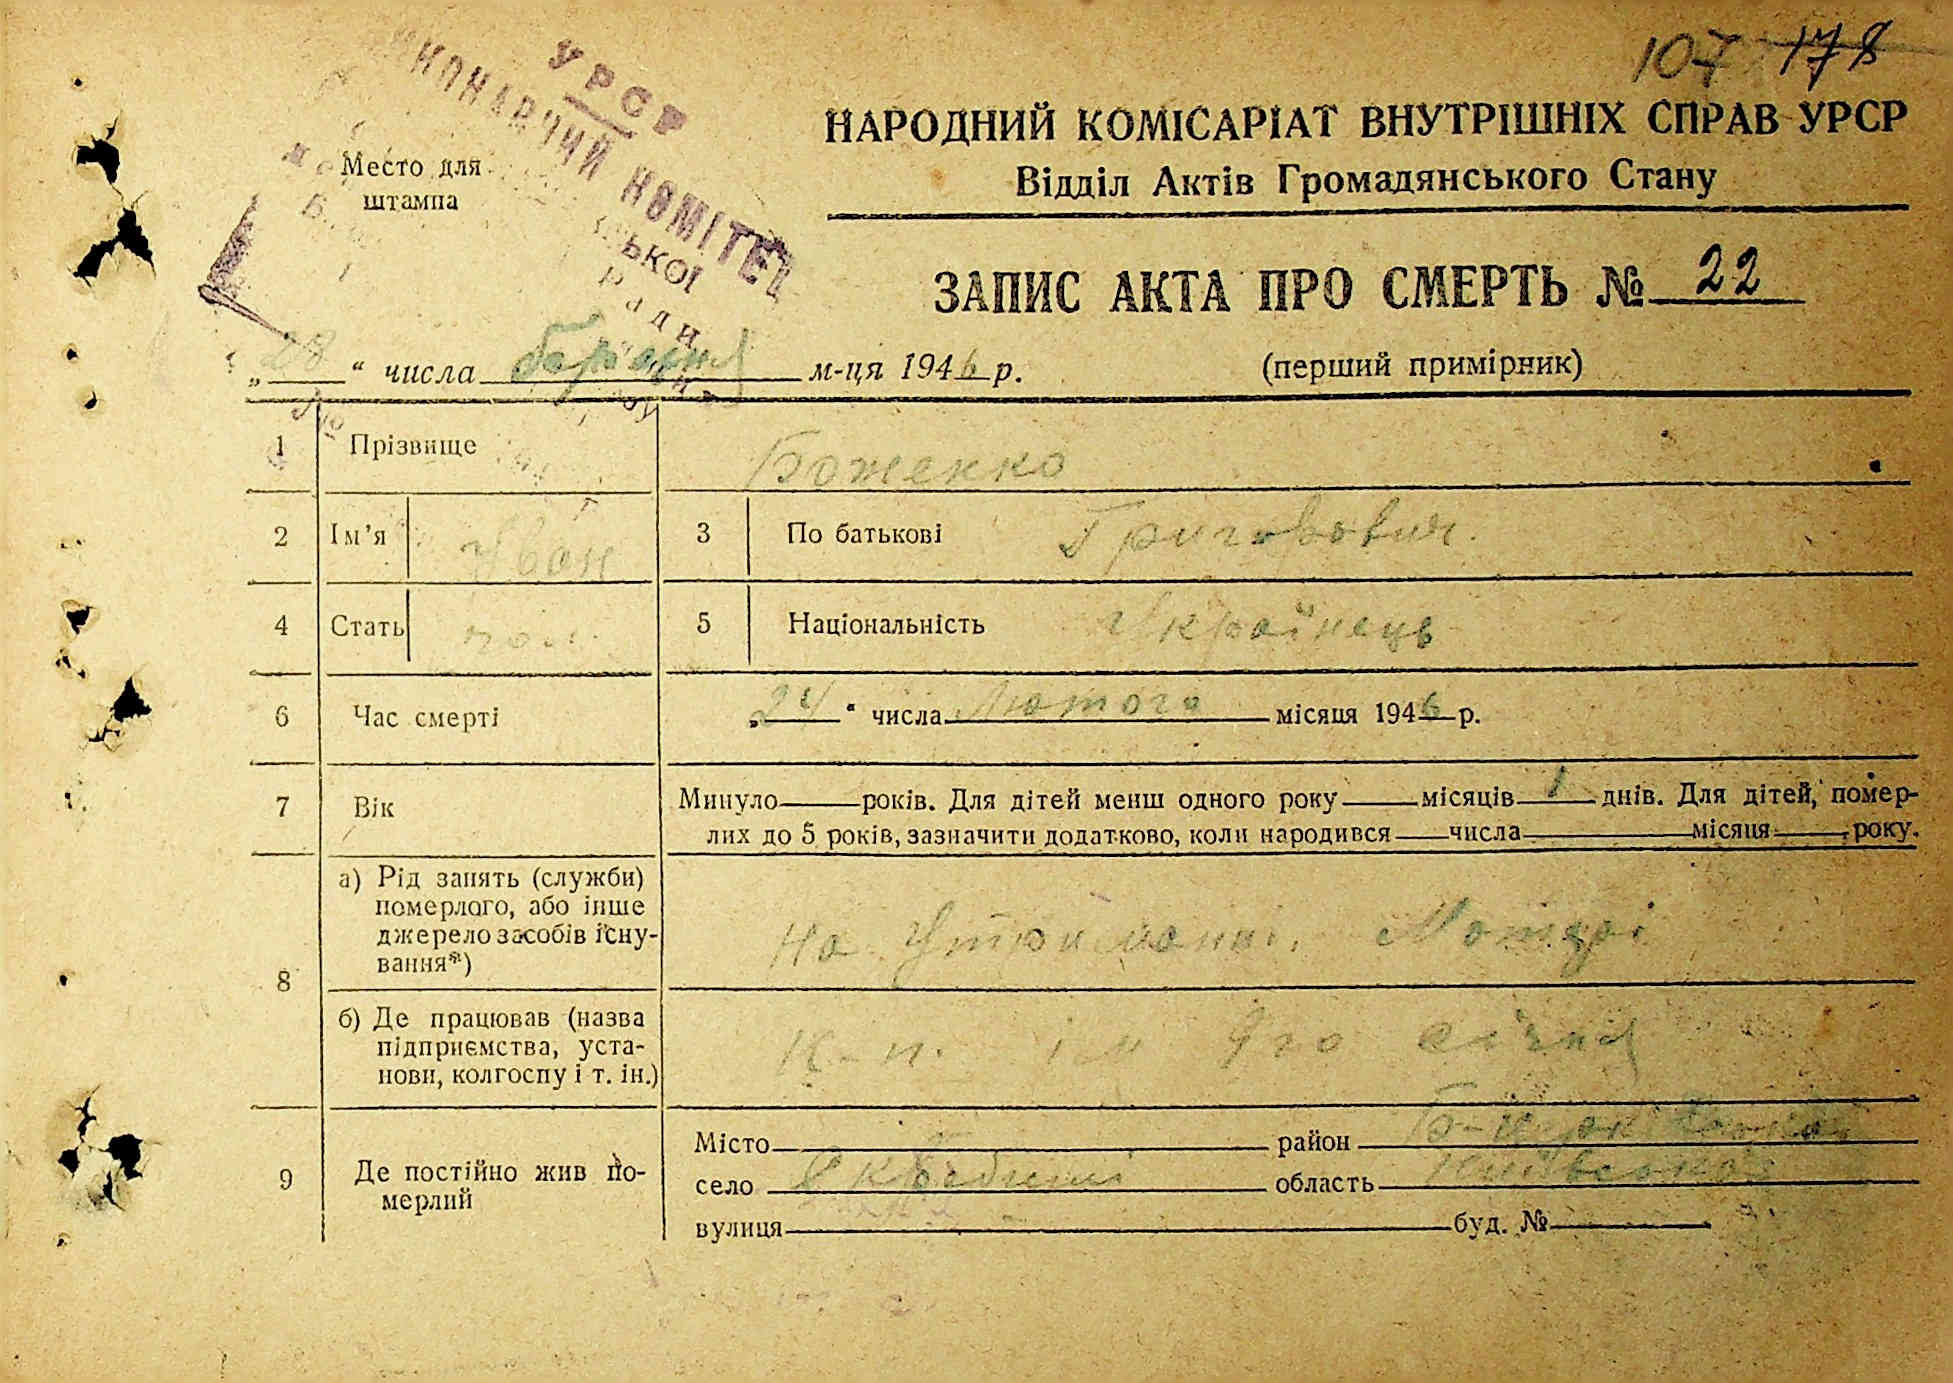 107 178
УРСР
ВИКОНАВЧИЙ КОМІТЕТ
ської
ради
Место для
штампа
НАРОДНИЙ КОМІСАРІАТ ВНУТРІШНІХ СПРАВ УРСР
Відділ Актів Громадянського Стану
ЗАПИС АКТА ПРО СМЕРТЬ № 22
„28“ числа березня м-ця 1946 р.
(перший примірник)
1 Прізвище Боженко
2 Ім’я Іван 3 По батькові Григорович.
4 Стать чол. 5 Національність Українець
6 Час смерті „24“ числа Лютого місяця 1946 р.
7 Вік Минуло років. Для дітей менш одного року місяців 1 днів. Для дітей, помер-
лих до 5 років, зазначити додатково, коли народився числа місяця року.
8 а) Рід занять (служби)
померлого, або інше
джерело засобів існу-
вання*)
На Утриманні. Матері
б) Де працював (назва
підприємства, уста-
нови, колгоспу і т. ін.)
ім 9го січня
9 Де постійно жив по-
мерлий
Місто район Б-Церківський
село область Київська
вулиця буд. №